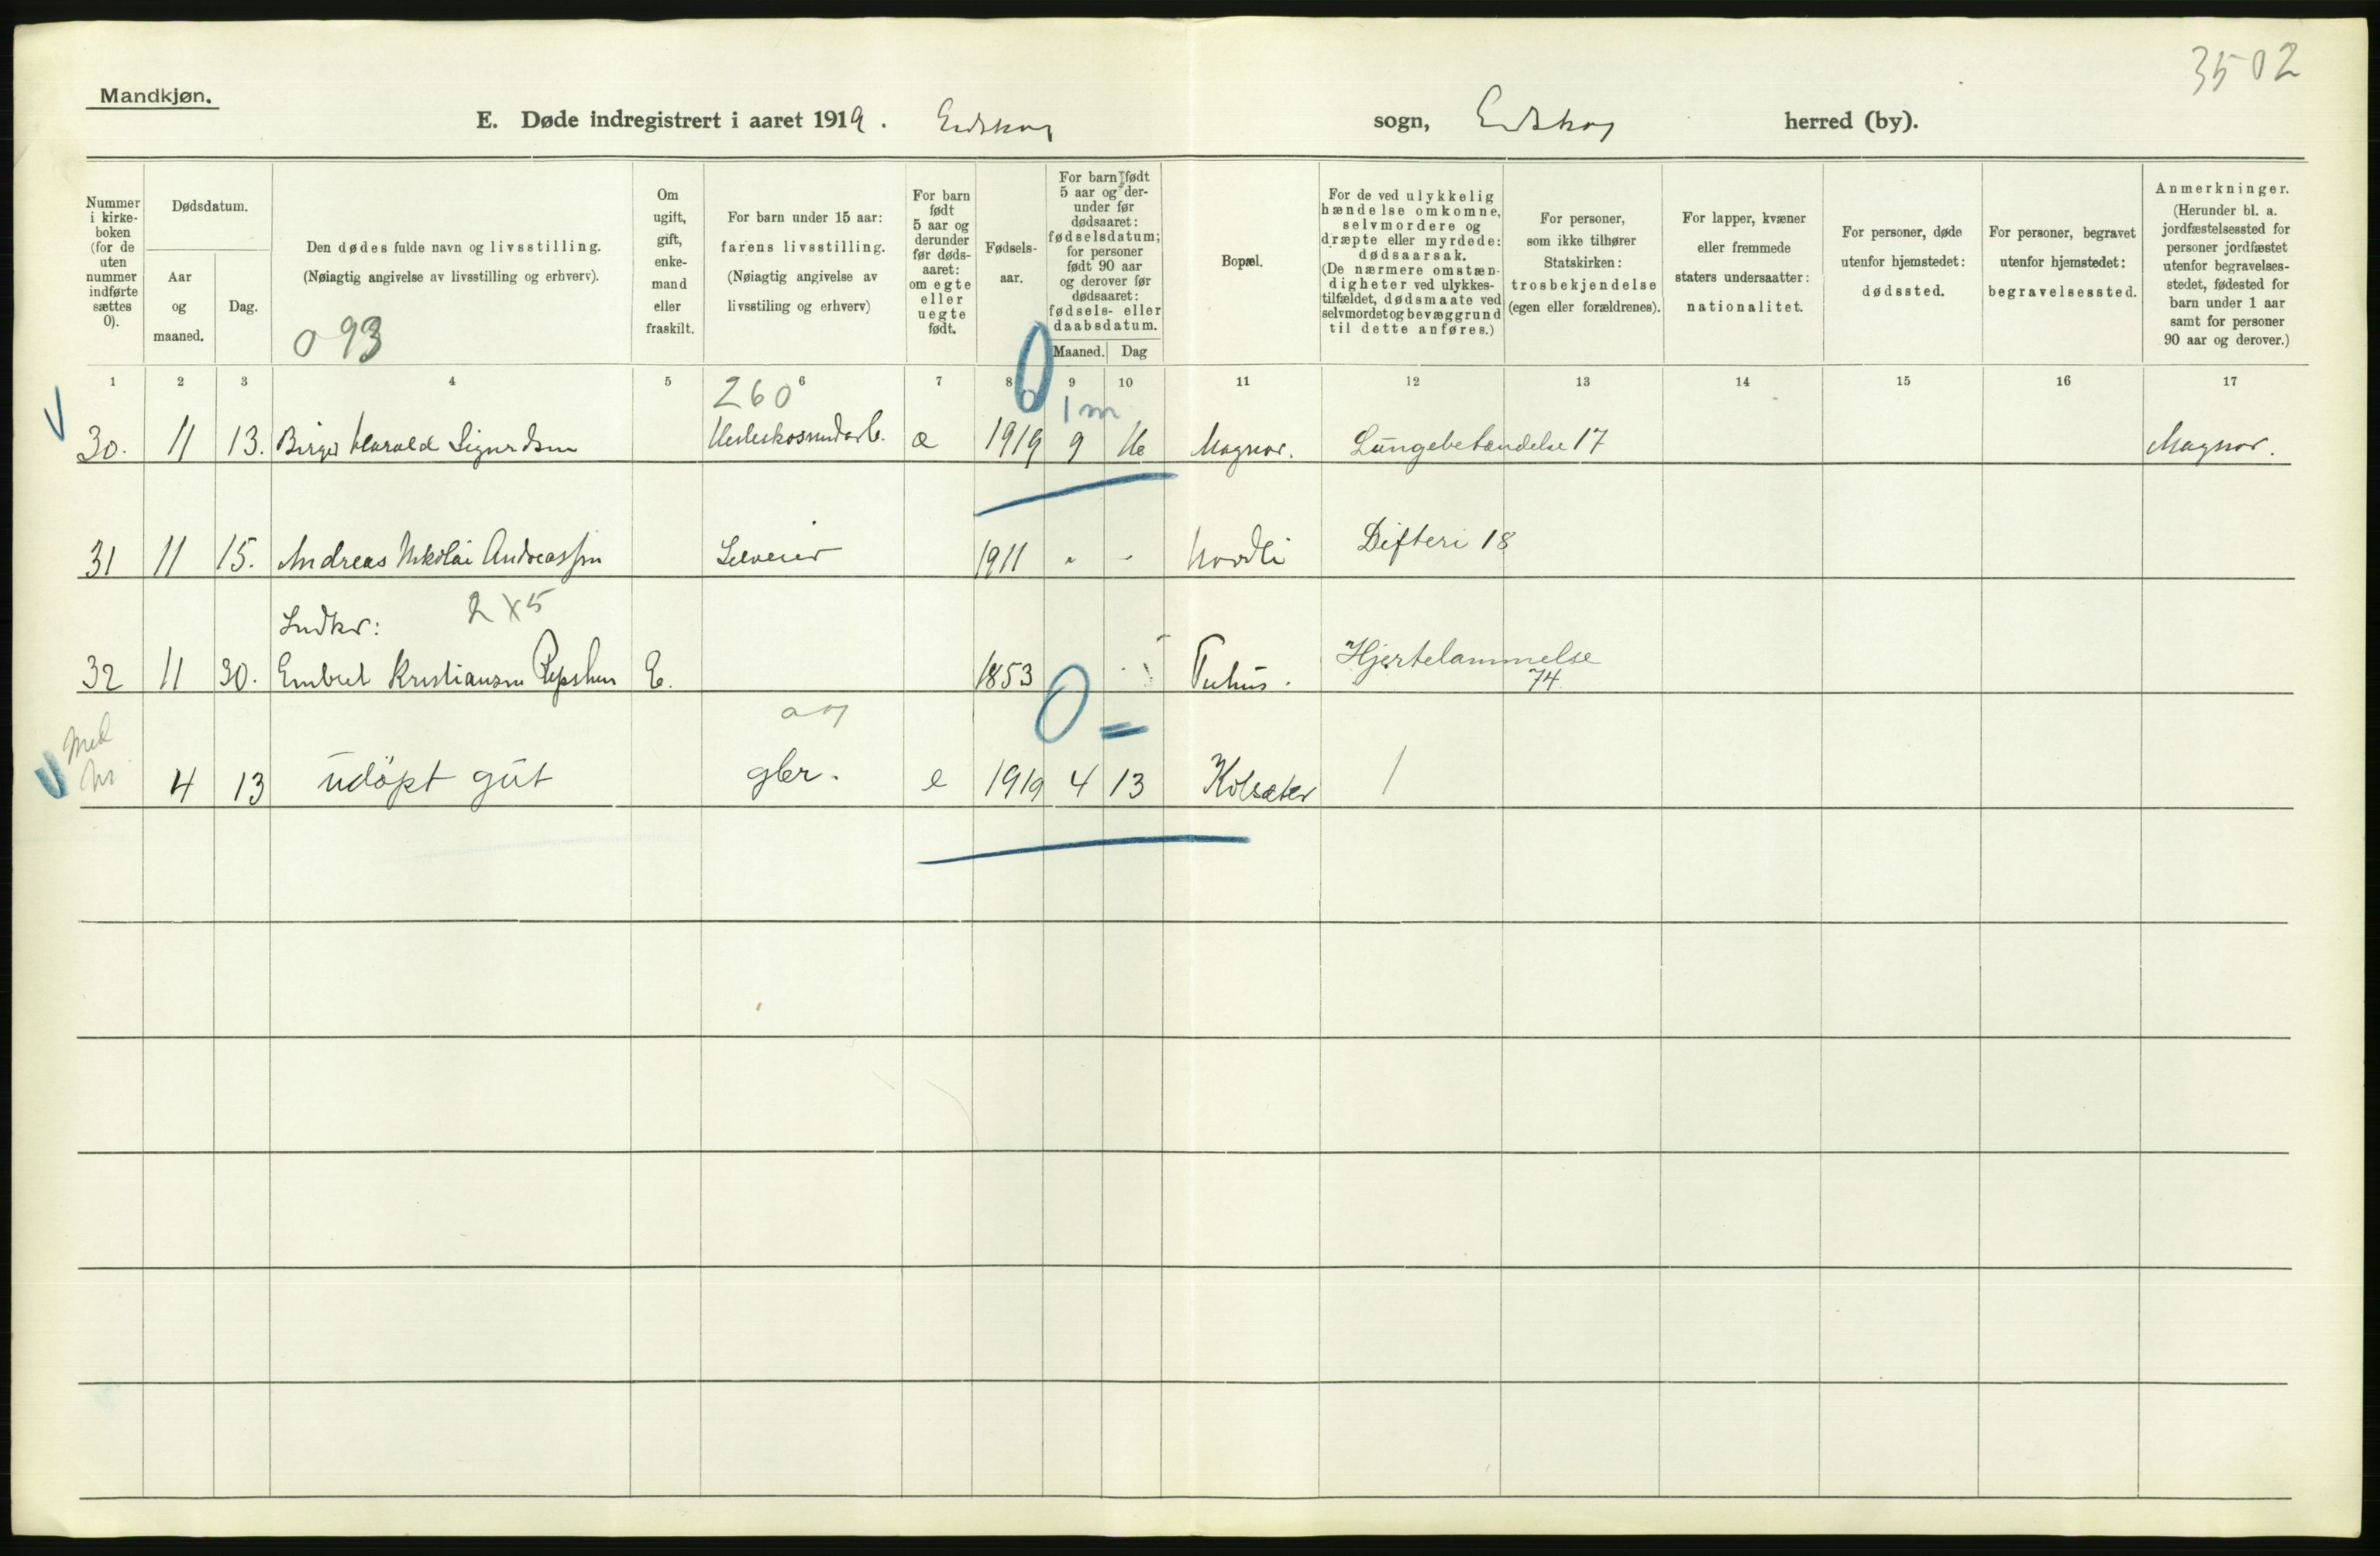 3502
Mandkjøn.
E. Døde indregistrert i aaret 1919. Eidskog sogn, Eidskog herred (by).
Nummer i kirke- boken (for de uten nummer indførte sættes 0).
Dødsdatum.
Aar og maaned.
Dag.
Den dødes fulde navn og livsstilling.
(Nøiagtig angivelse av livsstilling og erhverv).
093
Om ugift, gift, enke- mand eller fraskilt.
For barn under 15 aar: farens livsstilling.
(Nøiagtig angivelse av livsstiling og erhverv)
For barn født 5 aar og derunder før døds- aaret: om egte eller uegte født.
Fødsels- aar.
For barn født 5 aar og der- under før dødsaaret: fødselsdatum; for personer født 90 aar og derover før dødsaaret: fødsels- eller daabsdatum.
Maaned. Dag
Bopæl.
For de ved ulykkelig hændelse omkomne, selvmordere og dræpte eller myrdede: dødsaarsak.
(De nærmere omstæn- digheter ved ulykkes- tilfældet, dødsmaate ved selvmordet og bevæggrund til dette anføres.)
For personer, som ikke tilhører Statskirken: trosbekjendelse (egen eller forældrenes).
For lapper, kvæner eller fremmede staters undersaatter: nationalitet.
For personer, døde utenfor hjemstedet: dødssted.
For personer, begravet utenfor hjemstedet: begravelsessted.
Anmerkninger.
(Herunder bl. a. jordfæstelsessted for personer jordfæstet utenfor begravelses- stedet, fødested for barn under 1 aar samt for personer 90 aar og derover.)
1 2 3 4 5 6 7 8 9 10 11 12 13 14 15 16 17
260 0 1 m
30. 11 13. Birger Harald Sigurdsen æ 1919 9 16 Magnor. Lungebetændelse 17 Magnor.
31 11 15. Andreas Nikolai Andreassen Selveier 1911 " - Nordli Difteri 18
Indkr: 2 x 5
32 11 30. Embret Kristiansen E. 1853 Hjertelammelse
74
0 =
4 13 udöpt gut gbr. e 1919 4 13 Kolsæter /